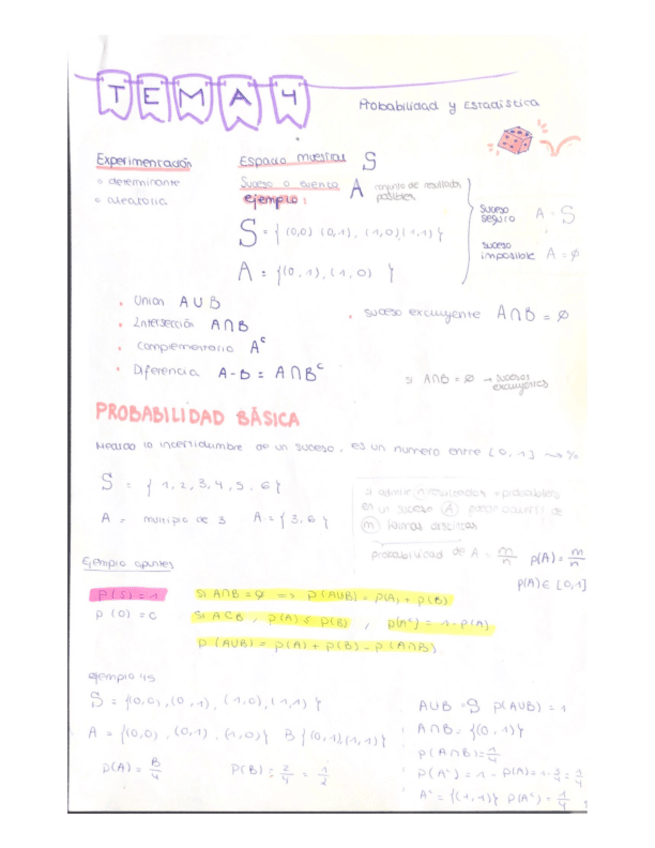 TEMA 4
Probabilidad y Estadística
Experimentación
Espacio muestral S
o determinante
o aleatoria
Suceso o evento A conjunto de resultados posibles
ejemplo:
S = { (0,0) (0,1), (1,0), (1,1) }
A = { (0,1), (1,0) }
suceso seguro A = S
suceso imposible A = ∅
• Union A ∪ B
• Intersección A ∩ B
• Complementario Aᶜ
• Diferencia A - B = A ∩ Bᶜ
• suceso excluyente A ∩ B = ∅
si A∩B = ∅ → sucesos excluyentes
PROBABILIDAD BÁSICA
la incertidumbre de un suceso, es un numero entre [0,1] ⇝ %
S = { 1, 2, 3, 4, 5, 6 }
A = multiplo de 3 A = { 3, 6 }
si admite n resultados
en un suceso A puede ocurrir de
m formas distintas
probabilidad de A = m/n p(A) = m/n
p(A) ∈ [0,1]
Ejemplo apuntes
p(S) = 1
p(0) = 0
Si A∩B = ∅ => p(A∪B) = p(A) + p(B)
Si A⊂B, p(A) ≤ p(B), p(Aᶜ) = 1 - p(A)
p(A∪B) = p(A) + p(B) - p(A∩B)
ejemplo 45
S = {(0,0), (0,1), (1,0), (1,1)}
A = {(0,0), (0,1), (1,0)} B {(0,1), (1,1)}
p(A) = 3/4 P(B) = 2/4 = 1/2
A∪B = S p(A∪B) = 1
A∩B = {(0,1)}
p(A∩B) = 1/4
p(Aᶜ) = 1 - p(A) = 1 - 3/4 = 1/4
Aᶜ = {(1,1)} p(Aᶜ) = 1/4